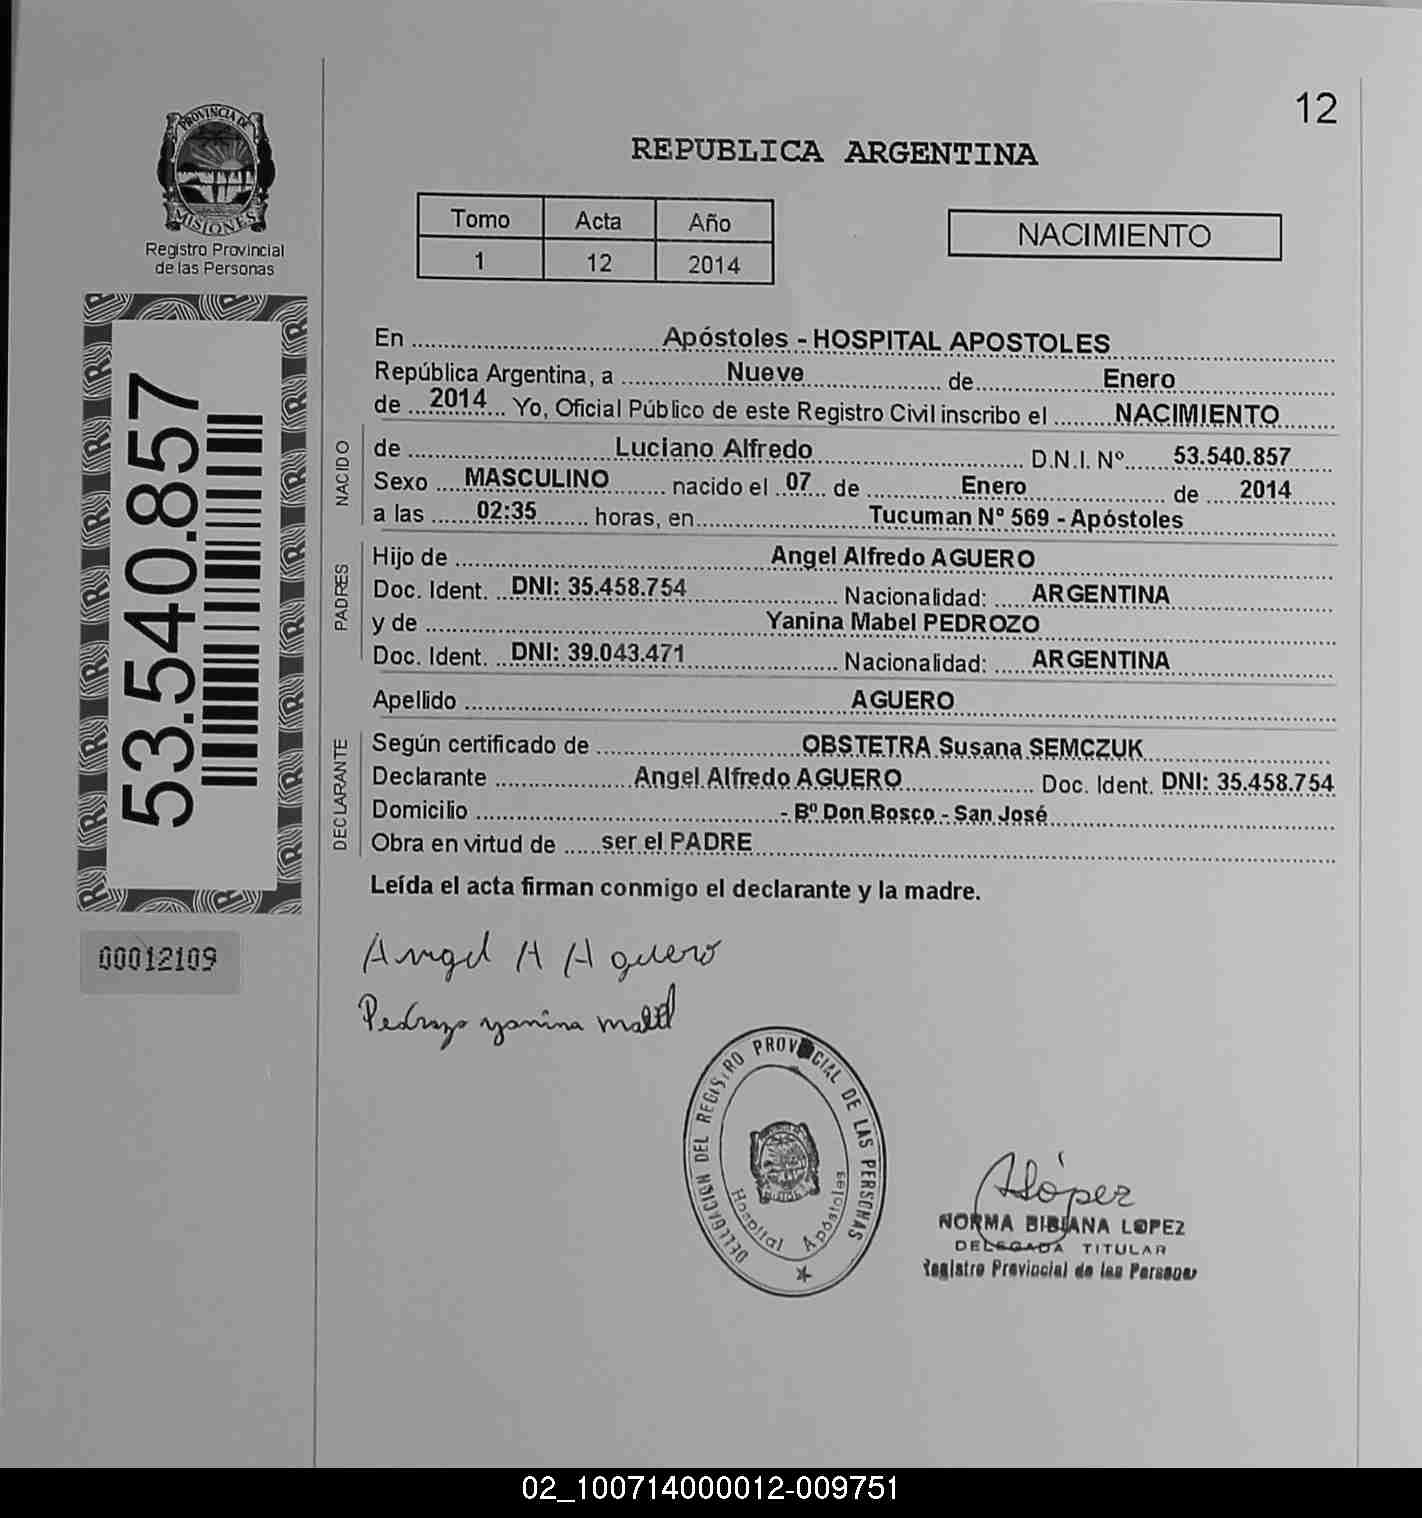 12
REPUBLICA ARGENTINA
PROVINCIA DE
MISIONES
Registro Provincial
de las Personas
Tomo Acta Año
1 12 2014
NACIMIENTO
53.540.857
00012109
En Apóstoles - HOSPITAL APOSTOLES
República Argentina, a Nueve de Enero
de 2014 Yo, Oficial Público de este Registro Civil inscribo el NACIMIENTO
NACIDO
de Luciano Alfredo D.N.I. Nº 53.540.857
Sexo MASCULINO nacido el 07 de Enero de 2014
a las 02:35 horas, en Tucuman Nº 569 - Apóstoles
PADRES
Hijo de Angel Alfredo AGUERO
Doc. Ident. DNI: 35.458.754 Nacionalidad: ARGENTINA
y de Yanina Mabel PEDROZO
Doc. Ident. DNI: 39.043.471 Nacionalidad: ARGENTINA
Apellido AGUERO
DECLARANTE
Según certificado de OBSTETRA Susana SEMCZUK
Declarante Angel Alfredo AGUERO Doc. Ident. DNI: 35.458.754
Domicilio - Bº Don Bosco - San José
Obra en virtud de ser el PADRE
Leída el acta firman conmigo el declarante y la madre.
Angel A Aguero
Pedrozo yanina mabel
DELEGACION DEL REGISTRO PROVINCIAL DE LAS PERSONAS
Hospital Apóstoles
López
NORMA BIBIANA LOPEZ
DELEGADA TITULAR
Registro Provincial de las Personas
02_100714000012-009751